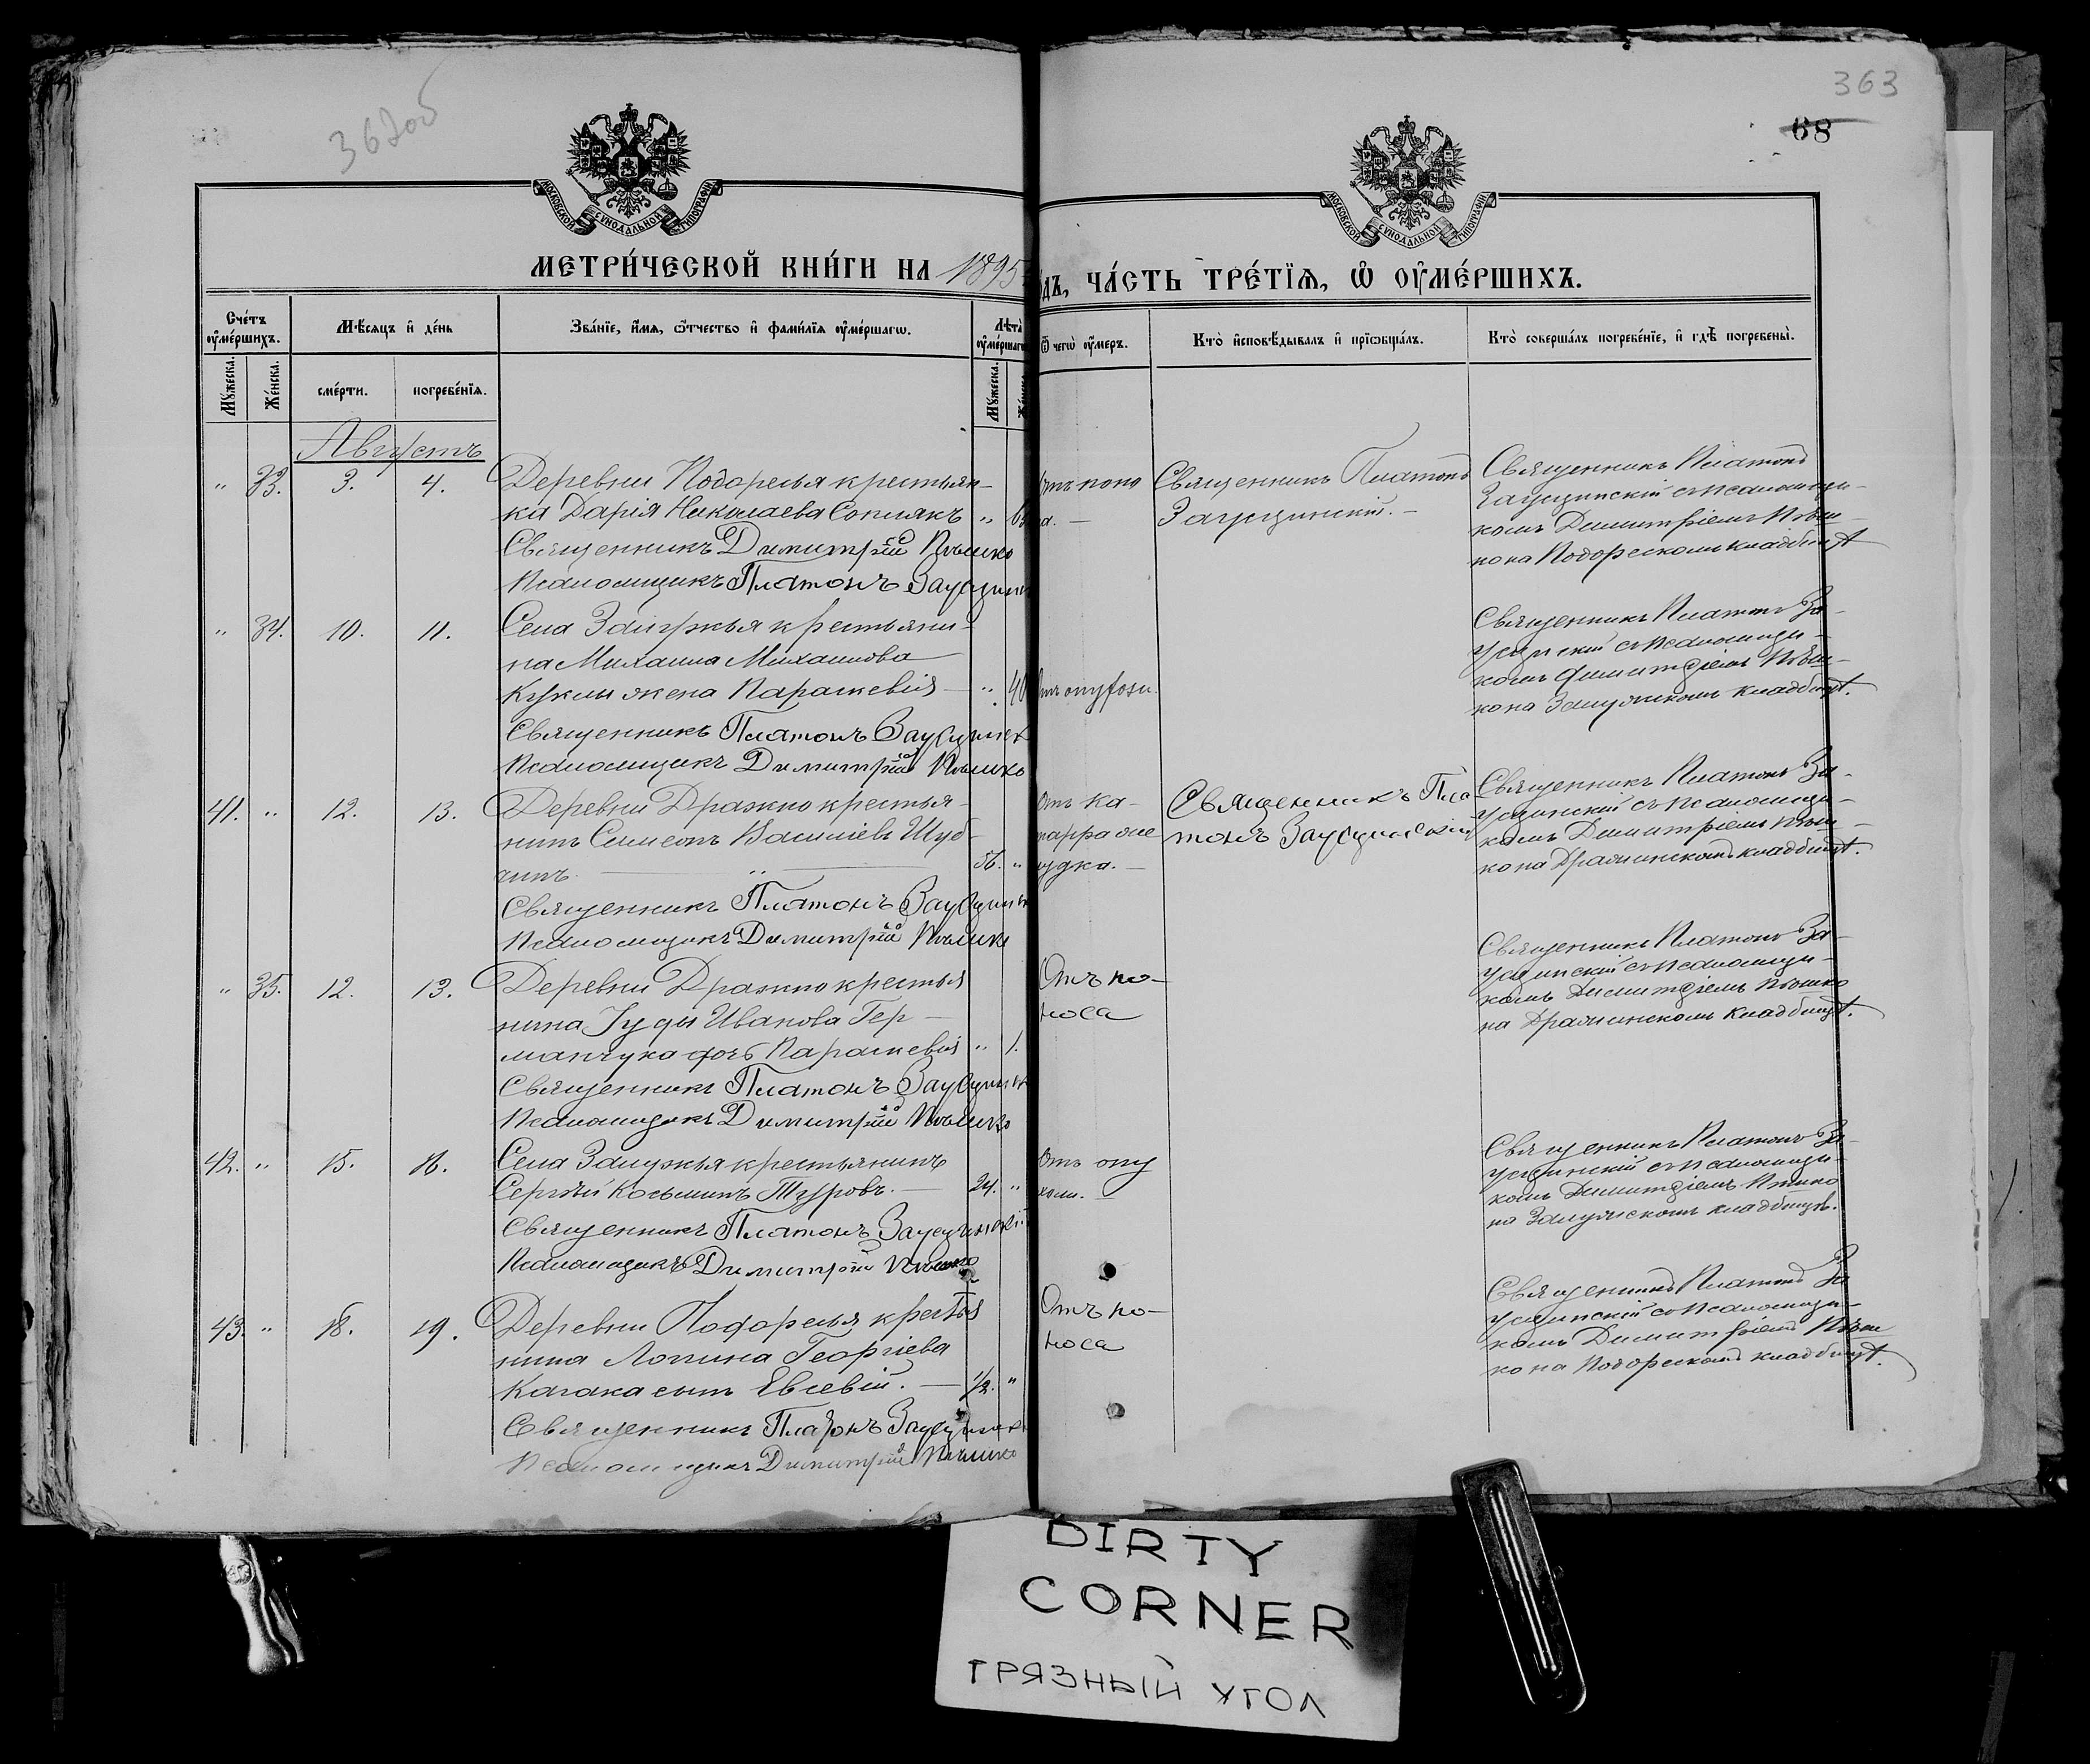 362об
363
68
МОСКОВСКОЙ СѴНОДАЛЬНОЙ ТИПОГРАФІИ
МОСКОВСКОЙ СѴНОДАЛЬНОЙ ТИПОГРАФІИ
МЕТРИ́ЧЕСКОЙ КНИ́ГИ НА 1895
ОДЪ, ЧА́СТЬ ТРЕ́ТІЯ, Ѽ ОУ҆МЕ́РШИХЪ.
Сче́тъ оу҆ме́ршихъ.
Мѣ́сѧцъ и҆ де́нь
Зва́нїе, и҆́мѧ, ѻ҆́тчество и҆ фами́лїѧ оу҆ме́ршагѡ.
Лѣ́та̀ оу҆ме́ршагѡ
Ѿ чегѡ̀ оу҆́меръ.
Кто̀ и҆сповѣ́дывалъ и҆ прїѡбща́лъ.
Кто̀ соверша́лъ погребе́нїе, и҆ гдѣ̀ погребены̀.
Мꙋ́жеска.
Же́нска.
сме́рти.
погребе́нїѧ.
Мꙋ́жеска.
Августъ
" 33. 3. 4. Деревни Подоресья крестьян-
ка Дарія Николаева Сопляк "
Священникъ Димитрій Пѣшко
Псаломщикъ Платонъ Заусцинс
Отъ поно
са. —
Священникъ Платонъ
Заусцинскій. —
Священникъ Платонъ
Заусцинскій съ псаломщи-
комъ Димитріемъ Пѣш-
ко на Подоресскомъ кладбищѣ
" 34. 10. 11. Села Замужья крестьяни-
на Михаила Михаилова
Куклы жена Параскевія — " 40
Священникъ Платонъ Заусцинск
Псаломщикъ Димитрій Пѣшко
Священникъ Платонъ За-
усцинскій съ псаломщи-
комъ Димитріемъ Пѣш-
ко на Замужскомъ кладбищѣ.
41. " 12. 13. Деревни Дражно крестья-
нинъ Симеонъ Василіевъ Шуб-
56. "
Священникъ Платонъ Заусцинск
Псаломщикъ Димитрій Пѣшко
Отъ ка-
тарра же
лудка. —
Священникъ Пла
тонъ Заусцинскій
Священникъ Платонъ За-
усцинскій съ псаломщи-
комъ Димитріемъ Пѣш-
ко на Дражненскомъ кладбищѣ.
" 35. 12. 13. Деревни Дражно крестья
нина Іуды Иванова Гер-
манчука дочь Параскевія " 1.
Священникъ Платонъ Заусцинск
Псаломщикъ Димитрій Пѣшко
Отъ по-
носа
Священникъ Платонъ За-
усцинскій съ псаломщи-
комъ Димитріемъ Пѣшко
на Дражненскомъ кладбищѣ.
42. " 15. 16. Села Замужья крестьянинъ
Сергѣй Косьминъ Туровъ. — 24. "
Священникъ Платонъ Заусцинскій
Псаломщикъ Димитрій Пѣшко
Отъ опу
холи. —
Священникъ Платонъ За-
усцинскій съ псаломщи-
комъ Димитріемъ Пѣшко
на Замужскомъ кладбищѣ.
43. " 18. 19. Деревни Подоресья крестья
нина Логина Георгіева
Качака сынъ Евсевій. — 1/2. "
Священникъ Платонъ Заусцинск
Псаломщикъ Димитрій Пѣшко
Отъ по-
носа
Священникъ Платонъ За
усцинскій съ псаломщи-
комъ Димитріемъ Пѣш
ко на Подоресскомъ кладбищѣ.
DIRTY
CORNER
ГРЯЗНЫЙ УГОЛ